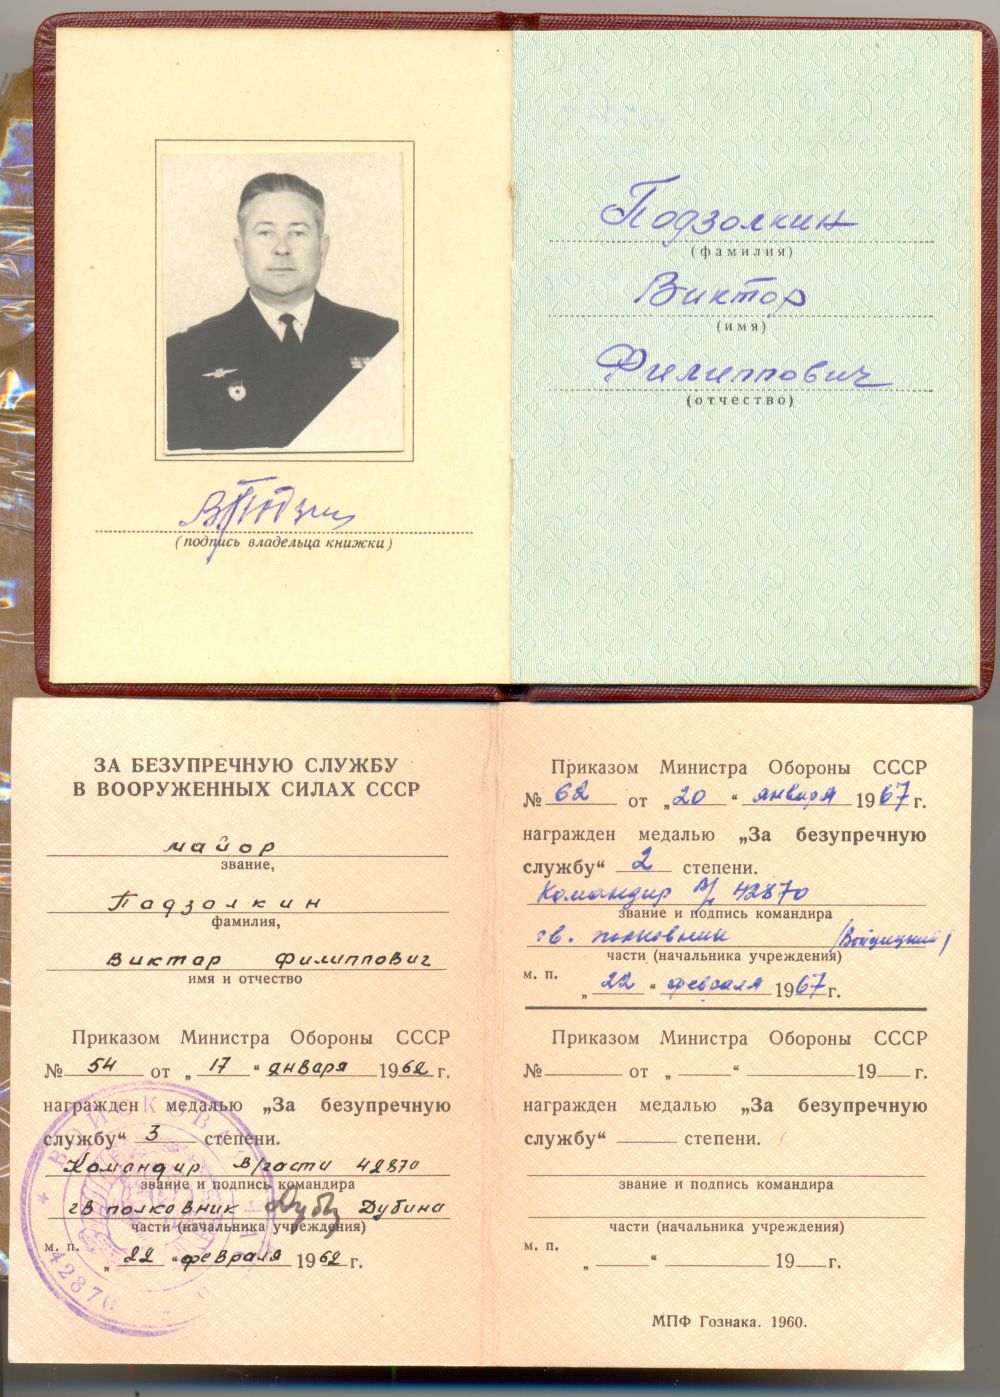 Подзолкин
(фамилия)
Виктор
(имя)
Филиппович
(отчество)
(подпись владельца книжки)
ЗА БЕЗУПРЕЧНУЮ СЛУЖБУ
В ВООРУЖЕННЫХ СИЛАХ СССР
майор
звание,
Падзалкин
фамилия,
Виктар Филиппович
имя и отчество
Приказом Министра Обороны СССР
№ 54 от „17“ января 1962 г.
награжден медалью „За безупречную
службу“ 3 степени.
Командир в/части 42870
звание и подпись командира
гв полковник Дубина
части (начальника учреждения)
м. п.
„22“ февраля 1962 г.
ВОЙСКОВАЯ
42870
Приказом Министра Обороны СССР
№ 62 от „20“ января 1967 г.
награжден медалью „За безупречную
службу“ 2 степени.
Командир в/ч 42870
звание и подпись командира
гв. полковник
части (начальника учреждения)
м. п.
„22“ февраля 1967 г.
Приказом Министра Обороны СССР
№ от „ “ 19 г.
награжден медалью „За безупречную
службу“ степени.
звание и подпись командира
части (начальника учреждения)
м. п.
„ “ 19 г.
МПФ Гознака. 1960.